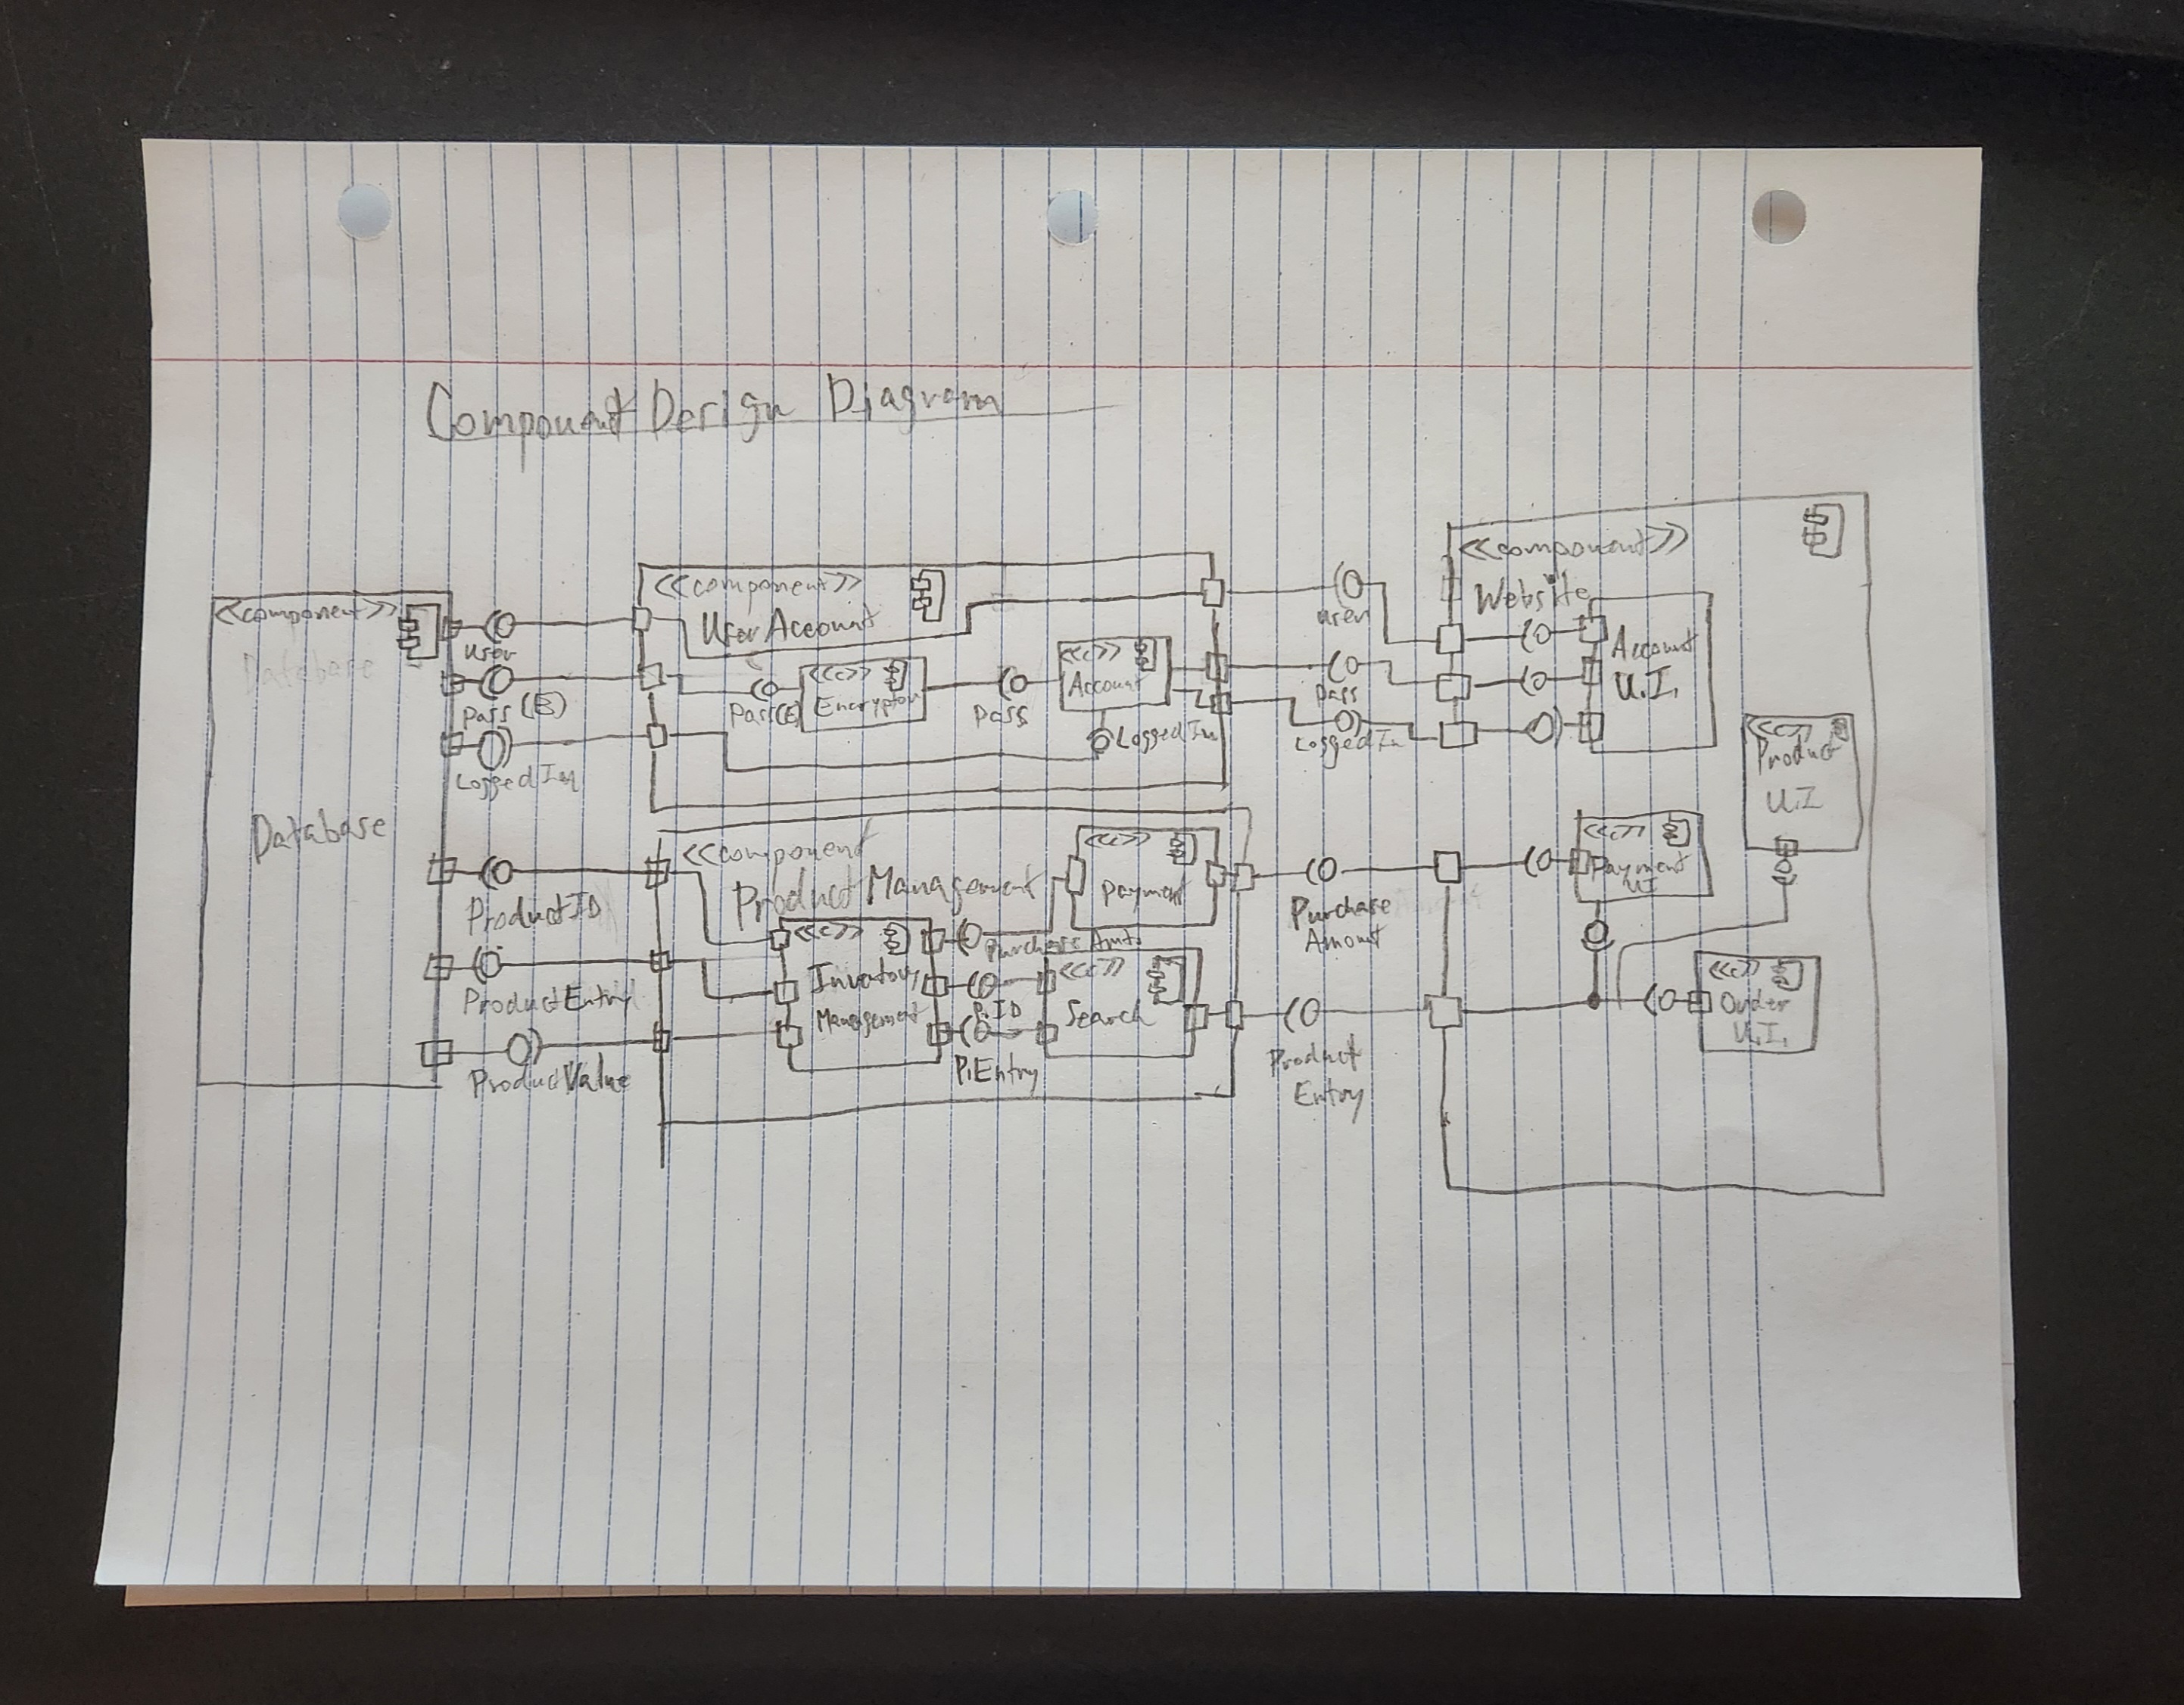 Component Design Diagram
<<component>>
Database
Database
User
Pass(E)
LoggedIn
ProductID
ProductEntry
ProductValue
<<component>>
UserAccount
Pass(E)
<<c>>
Encryptor
Pass
<<c>>
Account
LoggedIn
<<component
Product Management
<<c>>
Inventory
Management
Purchase Amt.
P.ID
P.Entry
<<c>>
payment
<<c>>
Search
User
Pass
LoggedIn
Purchase
Amount
Product
Entry
<<component>>
Website
Account
U.I.
<<c>>
Product
U.I
<<c>>
Payment
UI
<<c>>
Order
U.I.